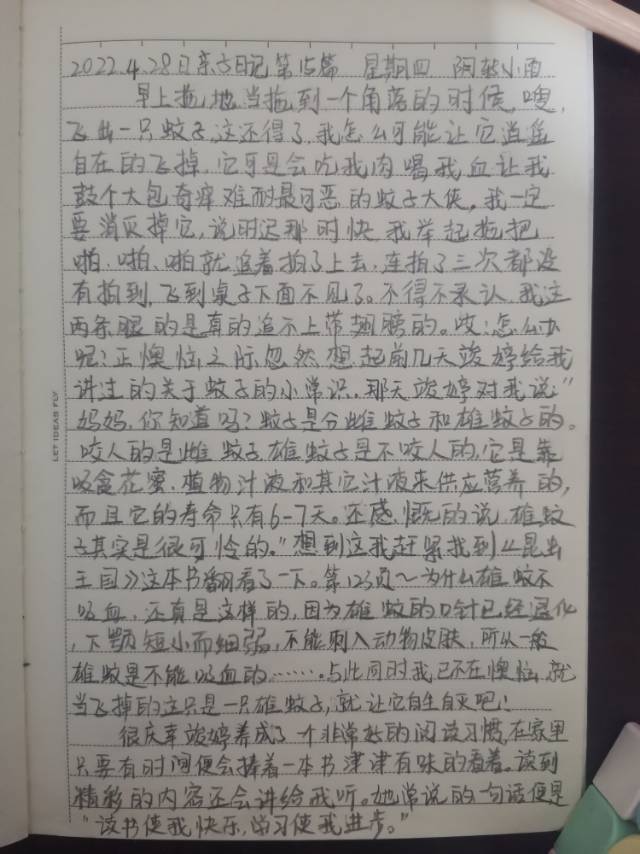 2022.4.28日亲子日记第15篇 星期四 阴转小雨
早上拖地,当拖到一个角落的时候,嗖,
飞出一只蚊子,这还得了,我怎么可能让它逍遥
自在的飞掉,它可是会吃我肉喝我血让我
鼓个大包奇痒难耐最可恶的蚊子大侠,我一定
要消灭掉它,说时迟那时快我举起拖把
啪、啪、啪就追着拍了上去,连拍了三次都没
有拍到,飞到桌子下面不见了。不得不承认,我这
两条腿的是真的追不上带翅膀的。哎!怎么办
呢?正懊恼之际忽然想起前几天竣婷给我
讲过的关于蚊子的小常识。那天竣婷对我说:"
妈妈,你知道吗?蚊子是分雌蚊子和雄蚊子的。
咬人的是雌蚊子,雄蚊子是不咬人的,它是靠
吸食花蜜、植物汁液和其它汁液来供应营养的,
而且它的寿命只有6-7天。还感慨的说,雄蚊
子其实是很可怜的。"想到这我赶紧找到《昆虫
王国》这本书翻看了一下。第123页～为什么雄蚊不
吸血,还真是这样的,因为雄蚊的口针已经退化
,下颚短小而细弱,不能刺入动物皮肤,所以一般
雄蚊是不能吸血的……。与此同时我已不在懊恼,就
当飞掉的这只是一只雄蚊子,就让它自生自灭吧!
很庆幸竣婷养成了一个非常好的阅读习惯,在家里
只要有时间便会捧着一本书津津有味的看着。读到
精彩的内容还会讲给我听。她常说的一句话便是
"读书使我快乐,学习使我进步。"
LET IDEAS FLY